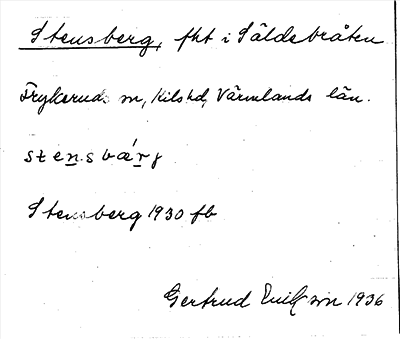 Stensberg, fht i Säldebråten
Frykeruds sn, Kils hd, Värmlands län.
stensbærj
Stensberg 1930 fb
Gertrud Emilsson 1936